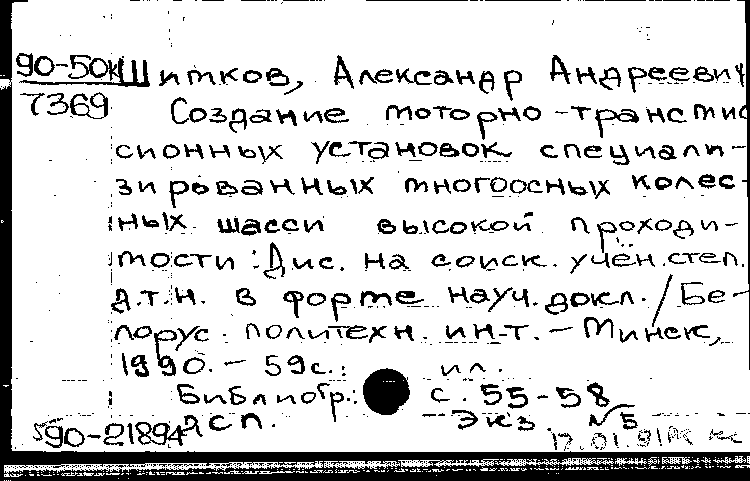 90-50к Шитков, Александр Андреевич
7369 Создание моторно-трансмис
сионных установок специали-
зированных многоосных колес-
ных шасси высокой проходи-
мости: Дис. на соиск. учён. степ.
д.т.н. в форме науч. докл. / Бе-
лорус. политехн. ин-т. – Минск,
1990. – 59 с.: ил.
Библиогр.: с. 55-58
ДСП. экз. № 5
90-21894
17.01.91